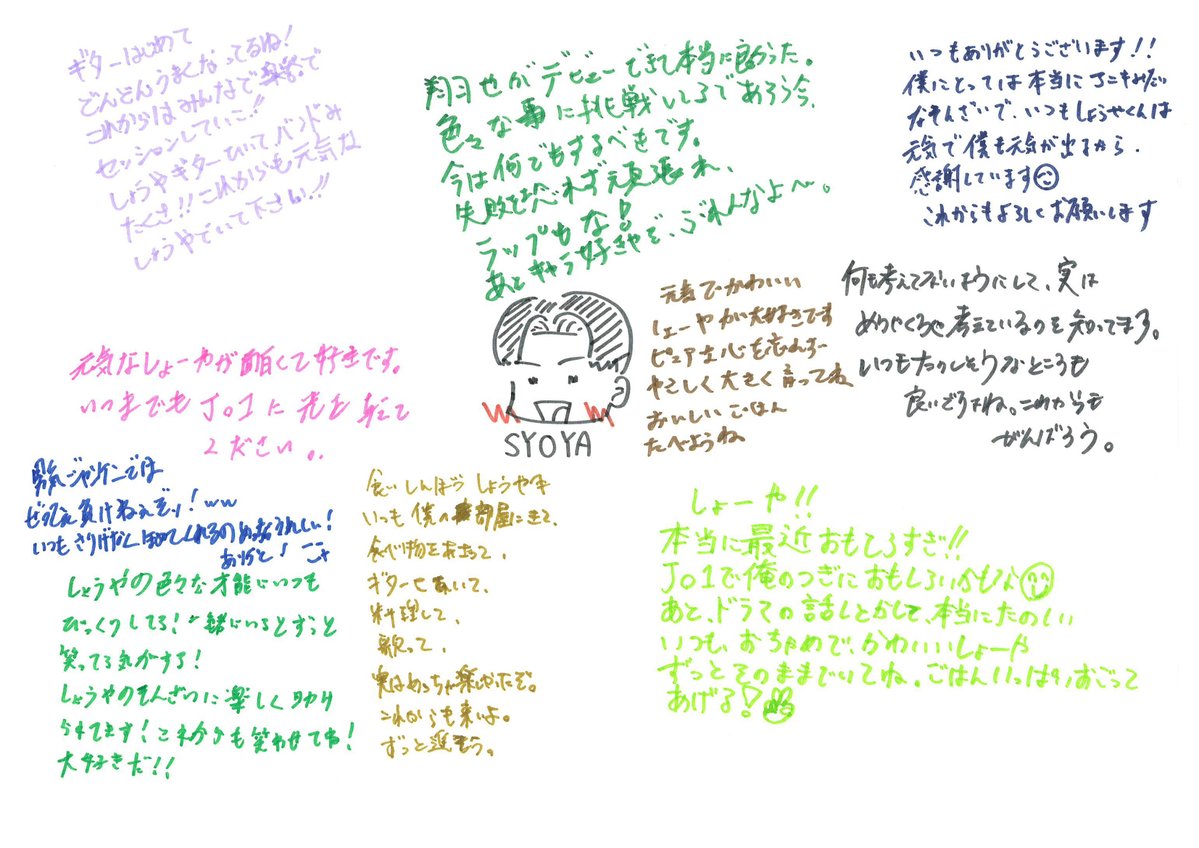 ギターはじめて
どんどんうまくなってるね!
これからはみんなで楽器で
セッションしていこ!!
しょうやギターひいて、バンドみ
たくさ!!これからも元気な
しょうやでいて下さい!!
翔也がデビューできて本当に良かった。
色々な事に挑戦してるであろう今、
今は何でもするべきです。
失敗を恐れず頑張れ、
ラップもな!
あとキャラ好きやぞ、ぶれんなよ〜。
いつもありがとうございます!!
僕にとっては本当にアニキみたい
なそんざいで、いつもしょうやくんは
元気で僕も元気が出るから、
感謝しています
これからもよろしくお願いします
元気でかわいい
しょーやが大好きです
ピュアな心を忘れず
やさしく大きく育ってね
おいしいごはん
たべようね
何も考えてないようにして、実は
めちゃくちゃ考えているのを知ってます。
いつもたのしそうなところも
良いですね。これからも
がんばろう。
元気なしょーやが面白くて好きです。
いつまでもJO1に光を
ください。
SYOYA
男気ジャンケンでは
ぜってぇ負けねぇぞッ!ww
いつもさりげなくほめてくれるのめっちゃうれしい!
ありがと!
しょうやの色々な才能にいつも
びっくりしてる!一緒にいるとずっと
笑ってる気がする!
しょうやのそんざいに楽しく助け
られてます!これからも笑わせてね!
大好きだ!!
食いしんぼうしょうや
いつも僕の部屋にきて、
食べ物をあさって、
ギターひいて、
料理して、
歌って、
実はめっちゃ楽しかったぞ。
これからも来いよ。
ずっと進もう。
しょーや!!
本当に最近おもろすぎ!!
JO1で俺のつぎにおもしろいかもな
あと、ドラマの話しとかして、本当にたのしい
いつも、おちゃめで、かわいいしょーや
ずっとそのままでいてね。ごはんいっぱいおごって
あげる!